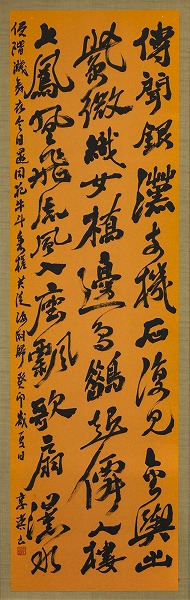 傳聞銀漢支機石復見金輿出
紫微織女橋邊烏鵲起僊人樓
上鳳凰飛流風入座飄歌扇瀑水
侵階濺舞衣今日還同犯牛斗乘槎共逐海潮歸癸卯歲夏日